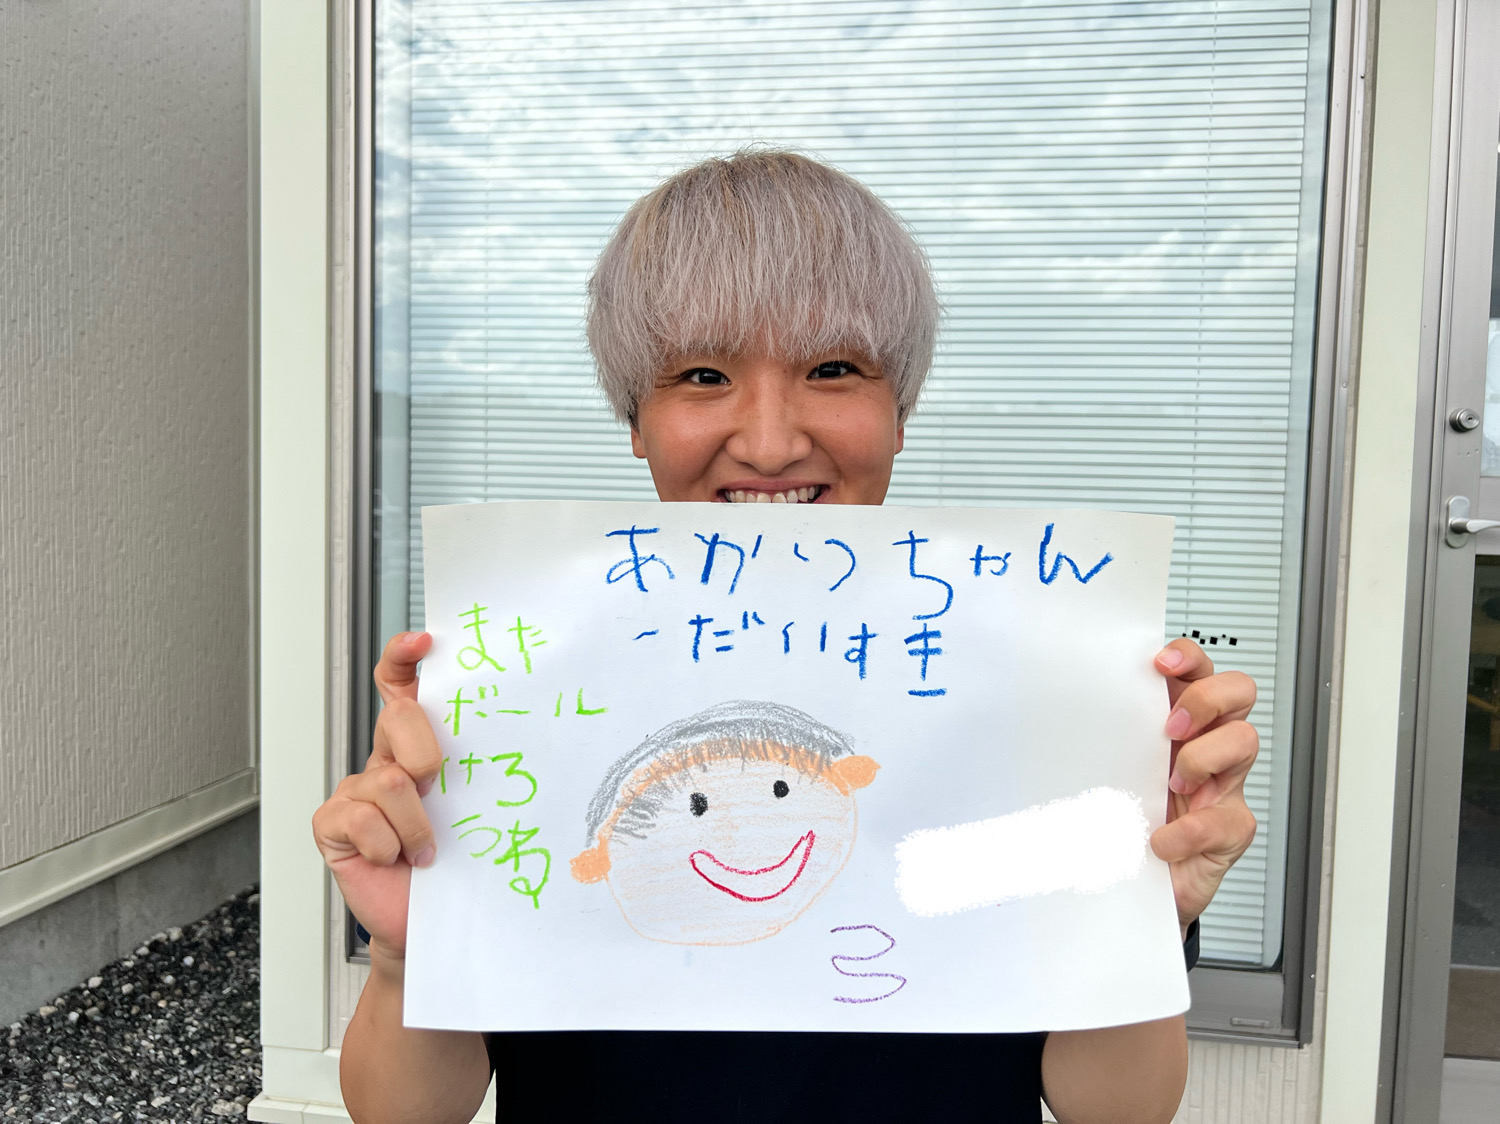 あかりちゃん
だいすき
また
ボール
けろ
うね